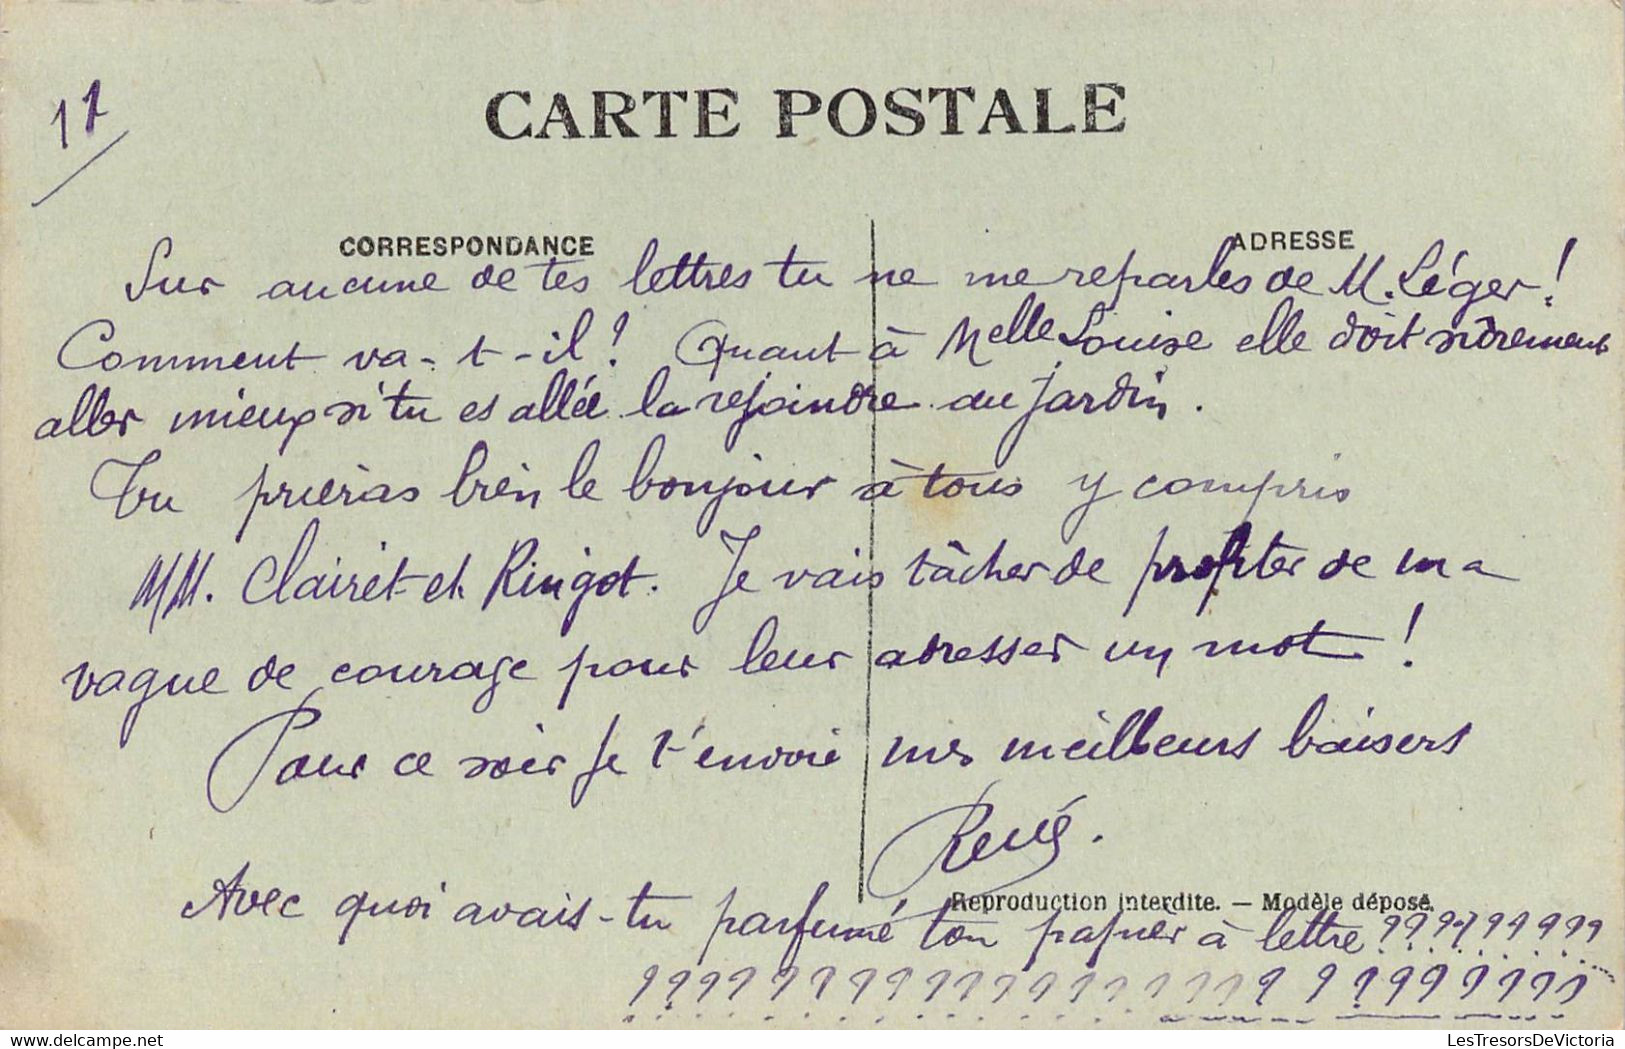 17
CARTE POSTALE
CORRESPONDANCE
ADRESSE
Sur aucune de tes lettres tu ne me reparles de M. Léger!
Comment va-t-il? Quant à Melle Louise elle doit sûrement
aller mieux si tu es allée la rejoindre au jardin.
Tu prieras bien le bonjour à tous y compris
MM. Clairet et Ringot. Je vais tâcher de profiter de ma
vague de courage pour leur adresser un mot!
Pour ce soir je t'envoie mes meilleurs baisers
René.
Reproduction interdite. — Modèle déposé.
Avec quoi avais-tu parfumé ton papier à lettre ??????????
??????????????????????
LesTresorsDeVictoria